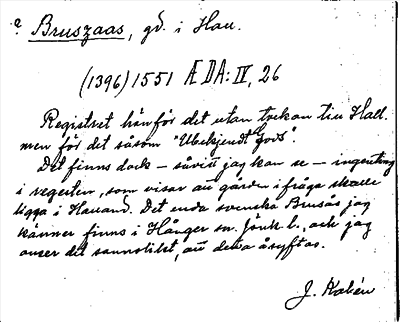 e Bruszaas, gd. i Hall.
(1396) 1551 ÆDA: IV, 26
Registret hänför det utan tvekan till Hall.
men för det såsom "Ubekjendt Gods".
Det finns dock – såvitt jag kan se – ingenting
i regesten, som visar att gården i fråga skulle
ligga i Halland. Det enda svenska Brusås jag
känner finns i Hånger sn. Jönk. l., och jag
anser det sannolikt, att detta åsyftas.
J. Kalén